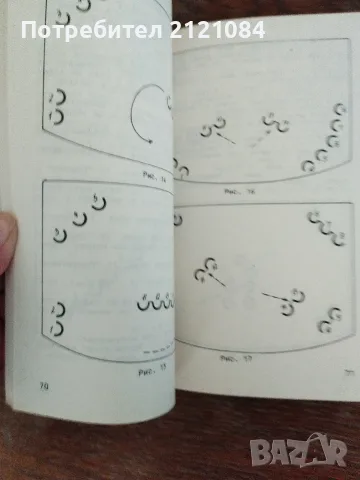 Потребител 2121084
Рис. 14
Рис. 16
Рис. 15
Рис. 17
70
BAZAR